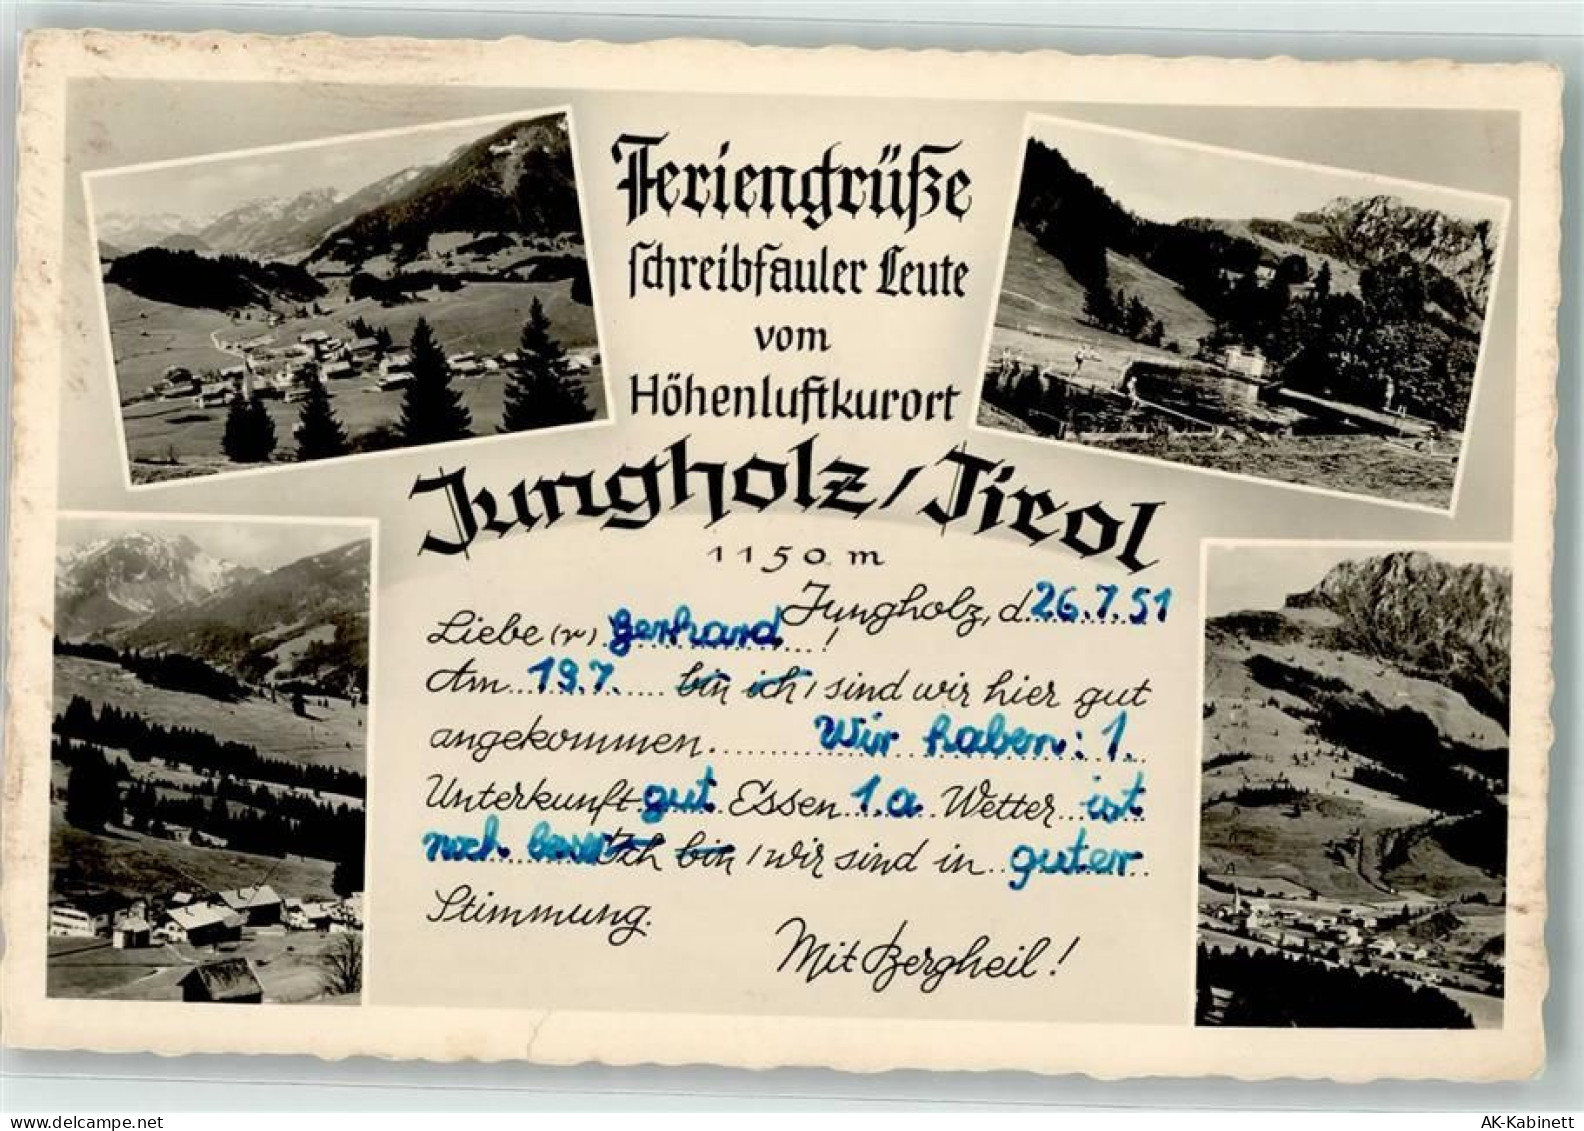 Feriengrüße
schreibfauler Leute
vom
Höhenluftkurort
Jungholz/Tirol
1150 m
Jungholz, d. 26.7.51
Liebe (r) Gerhard !
Am 19.7. bin ich / sind wir hier gut
angekommen. Wir haben: 1.
Unterkunft gut Essen 1.a Wetter ist
noch Ich bin / wir sind in guter
Stimmung.
Mit Bergheil!
AK-Kabinett